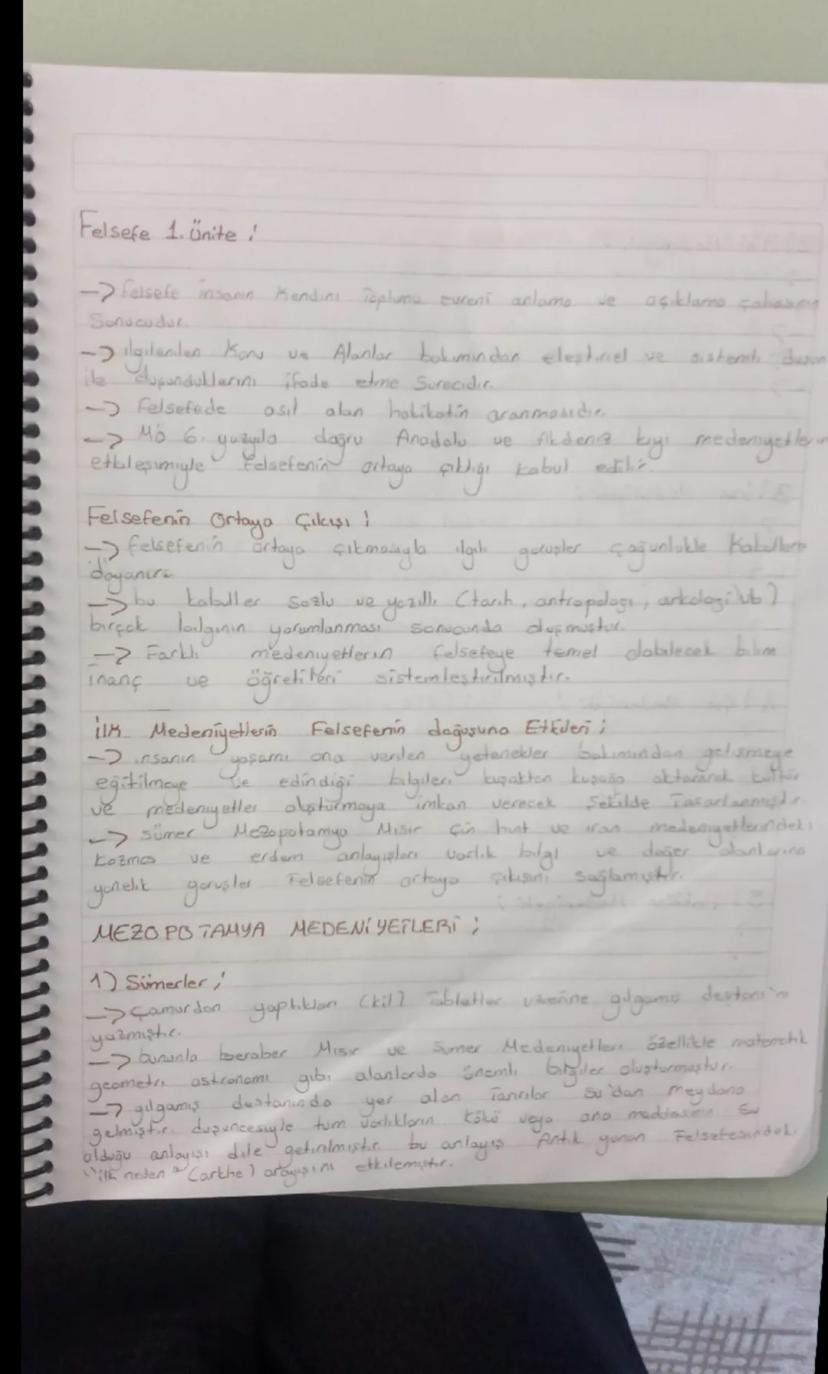 Felsefe 1. Ünite :
→ felsefe insanın Kendini Toplumu evreni anlama ve açıklama çabasının
Sonucudur.
→ ilgilenilen Konu ve Alanlar bakımından eleştirel ve sistemli
ile düşündüklerini ifade etme Surecidir.
→ Felsefede asıl olan hakikatin aranmasıdır.
→ MÖ 6. yüzyıla doğru Anadolu ve Akdeniz kıyı medeniyetleri
etkileşimiyle Felsefenin ortaya çıktığı kabul edilir.
Felsefenin Ortaya Çıkışı :
→ felsefenin ortaya çıkmasıyla ilgili goruşler çoğunlukla Kabullere
dayanır.
→ bu kabuller sozlu ve yazılı (tarih, antropoloji, arkeoloji vb)
birçok bilginin yorumlanması sonucunda oluşmuştur.
→ Farklı medeniyetlerin felsefeye temel olabilecek bilim
inanç ve öğretileri sistemleştirilmiştir.
İlk Medeniyetlerin Felsefenin doğuşuna Etkileri :
→ insanın yaşamı ona verilen yetenekler bakımından gelişmeye
eğitilmeye ve edindiği bilgileri kuşaktan kuşağa aktararak kültür
ve medeniyetler oluşturmaya imkan verecek şekilde Tasarlanmıştır.
→ Sümer Mezopotamya Mısır çin hint ve iran medeniyetlerindeki
Kozmos ve erdem anlayışları varlık bilgi ve değer alanlarına
yonelik goruşler Felsefenin ortaya çıkışını sağlamıştır.
MEZOPOTAMYA MEDENİYETLERİ :
1) Sümerler :
→ Çamurdan yaptıkları (kil) Tabletler üzerine gılgamış destanı'nı
yazmıştır.
→ bununla beraber Mısır ve Sumer Medeniyetleri özellikle matematik
geometri astronomi gibi alanlarda önemli bilgiler oluşturmuştur.
→ gılgamış destanında yer alan Tanrılar Su'dan meydana
gelmiştir. duşuncesiyle tum varlıkların kökü veya ana maddesinin su
olduğu anlayışı dile getirilmiştir bu anlayış Antik yunan Felsefesindeki
"ilk neden" (arkhe) arayışını etkilemiştir.